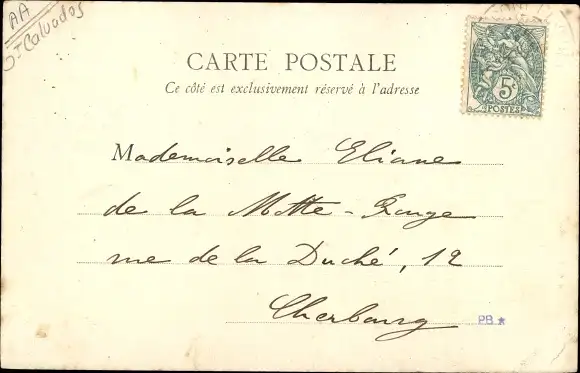 AA
Calvados
CARTE POSTALE
Ce côté est exclusivement réservé à l'adresse
5c
POSTES
Mademoiselle Eliane
de la Motte-Rouge
rue de la Duché, 12
Cherbourg
PB *